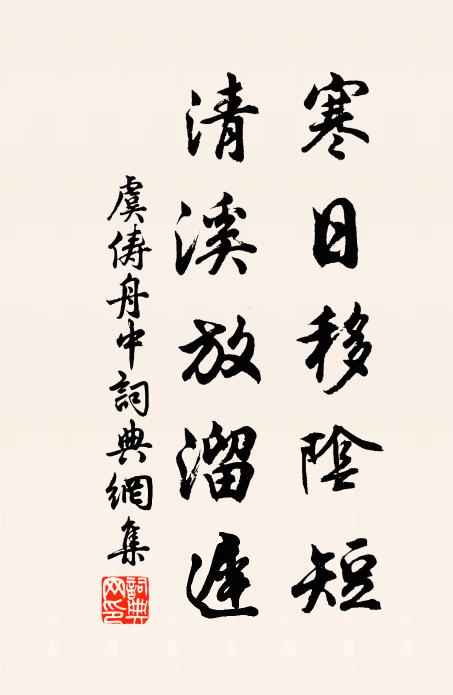 寒日移陰短
清溪放溜遲
虞儔舟中詞典網集
詞典网印